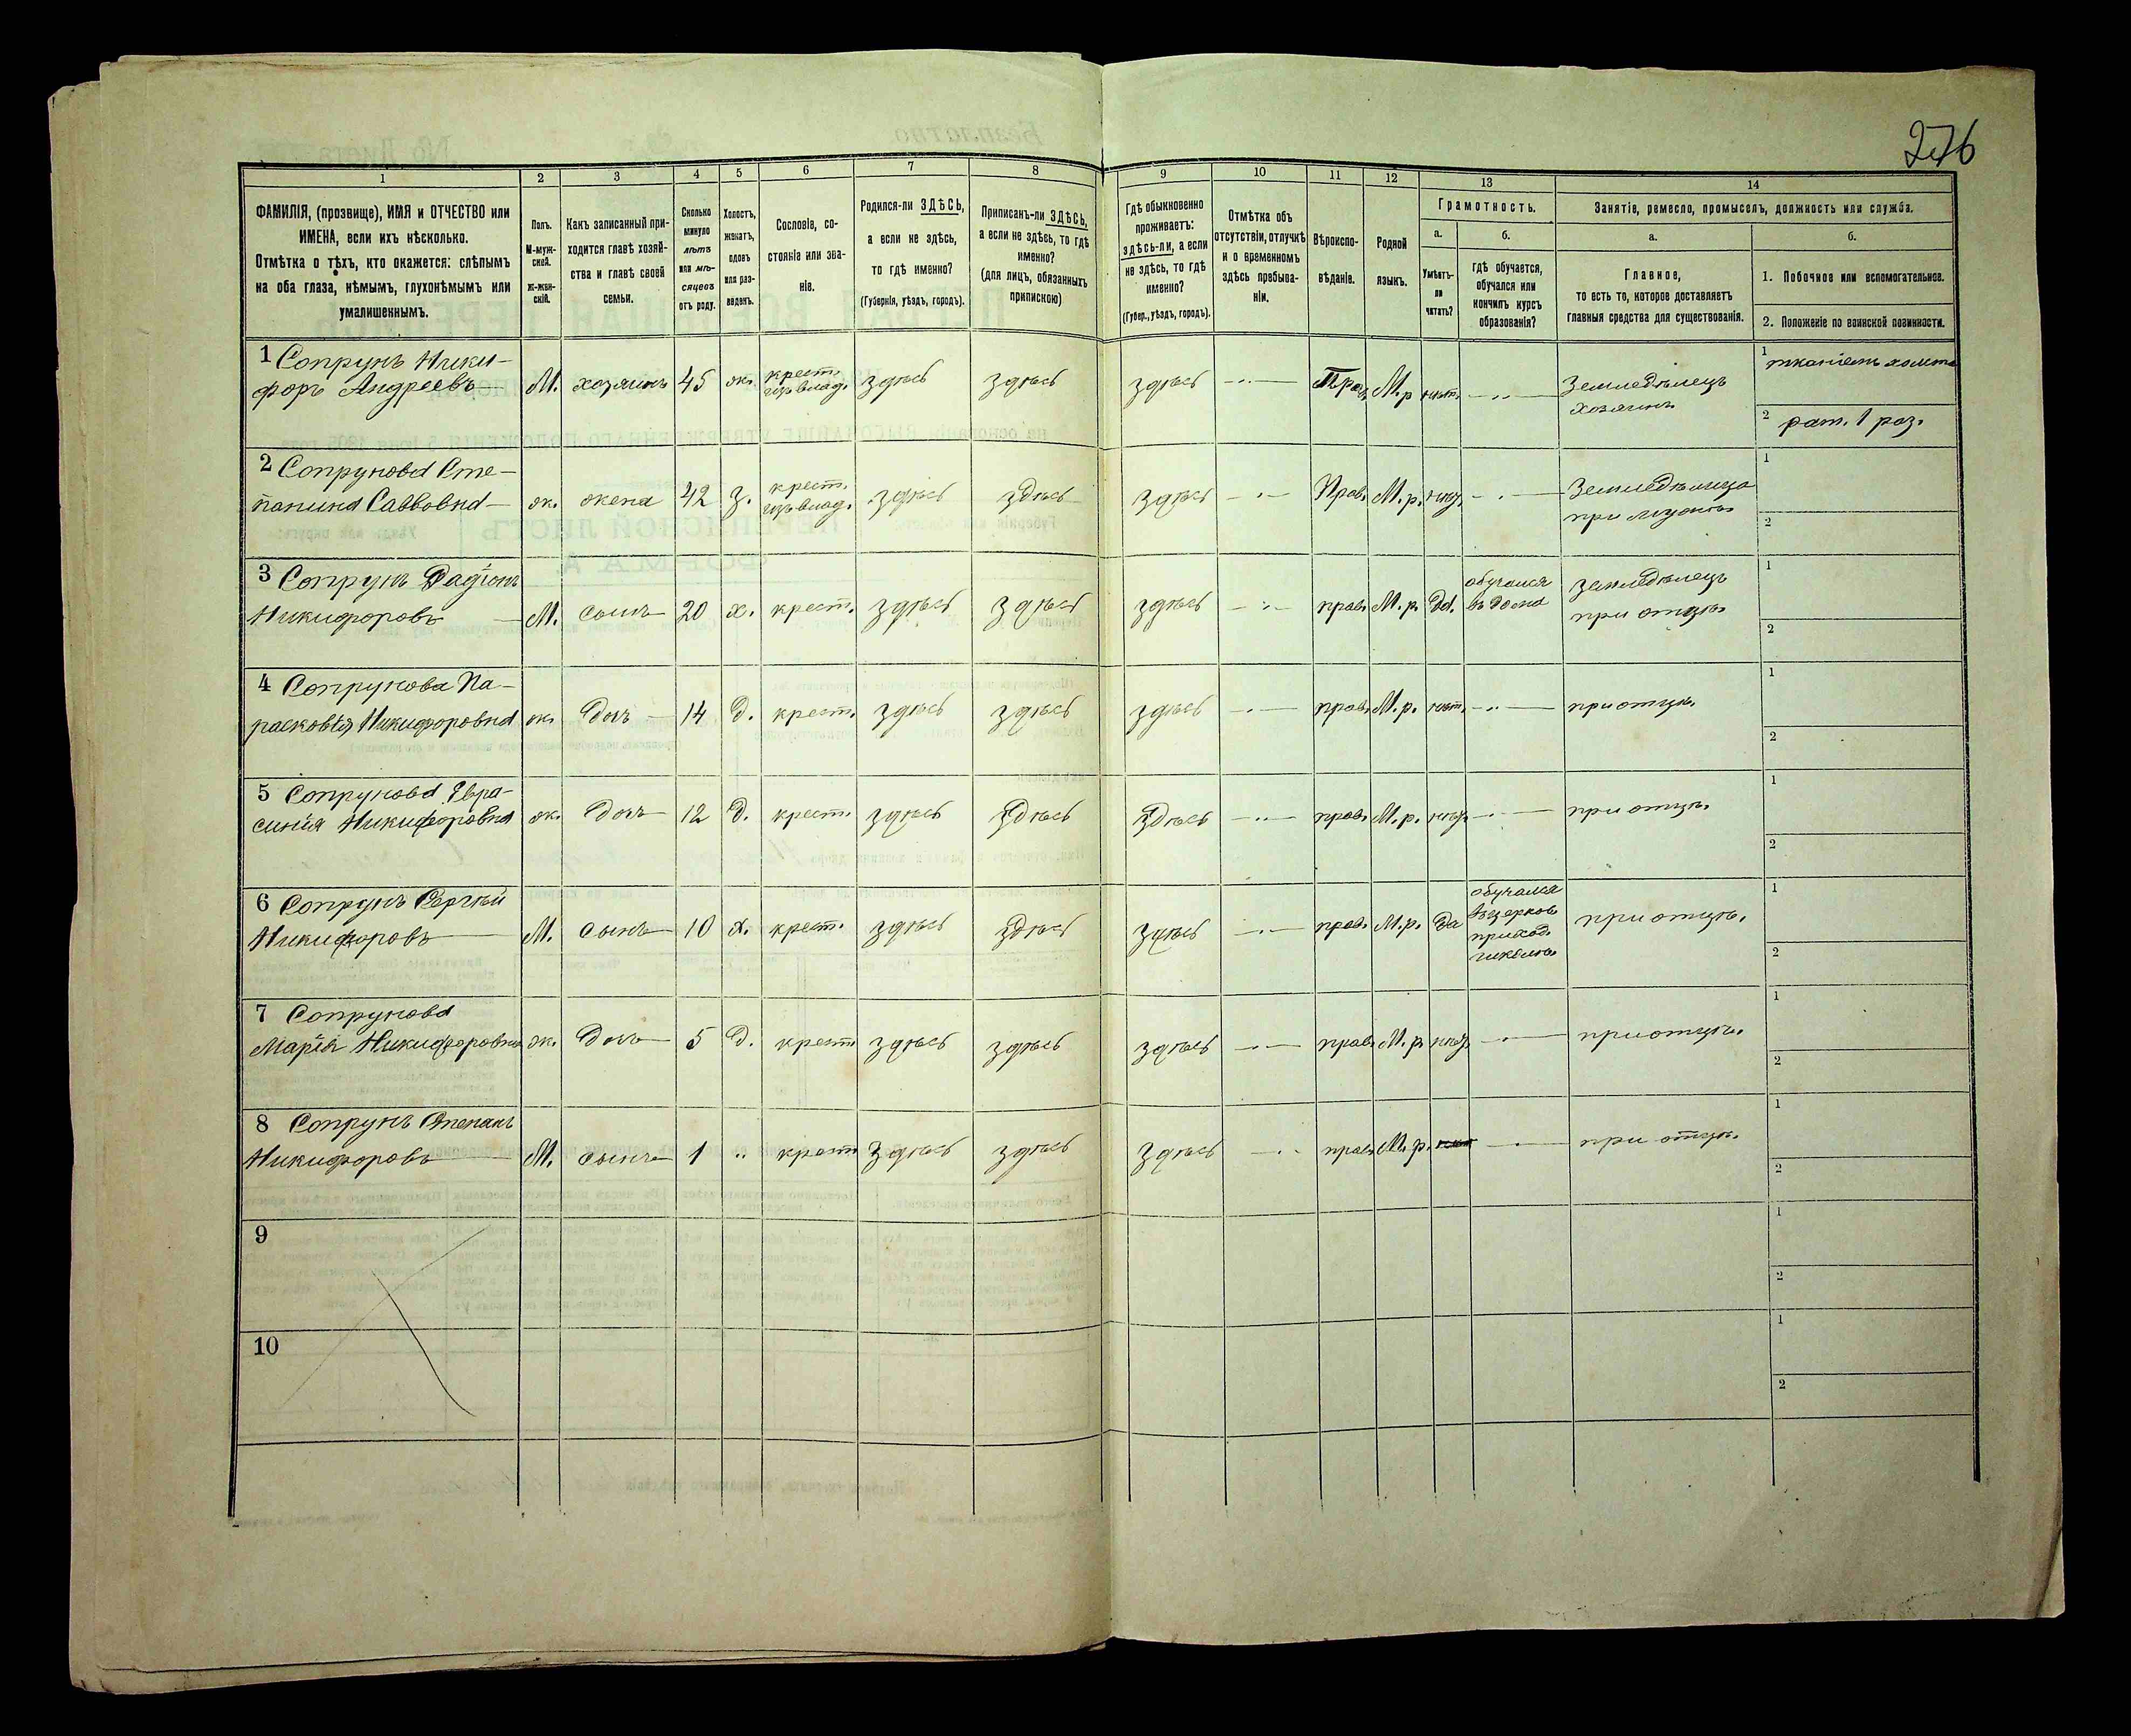 276
1
2
3
4
5
6
7
8
9
10
11
12
13
14
ФАМИЛІЯ, (прозвище), ИМЯ и ОТЧЕСТВО или
ИМЕНА, если ихъ нѣсколько.
Отмѣтка о тѣхъ, кто окажется: слѣпымъ
на оба глаза, нѣмымъ, глухонѣмымъ или
умалишеннымъ.
Полъ.
М-муж-
ской.
Ж-жен-
скій.
Какъ записанный при-
ходится главѣ хозяй-
ства и главѣ своей
семьи.
Сколько
минуло
лѣтъ
или мѣ-
сяцевъ
отъ роду.
Холостъ,
женатъ,
вдовъ
или раз-
веденъ.
Сословіе, со-
стояніе или зва-
ніе.
Родился-ли ЗДѢСЬ,
а если не здѣсь,
то гдѣ именно?
(Губернія, уѣздъ, городъ).
Приписанъ-ли ЗДѢСЬ,
а если не здѣсь, то гдѣ
именно?
(для лицъ, обязанныхъ
припискою)
Гдѣ обыкновенно
проживаетъ:
здѣсь-ли, а если
не здѣсь, то гдѣ
именно?
(Губер., уѣздъ, городъ).
Отмѣтка объ
отсутствіи, отлучкѣ
и о временномъ
здѣсь пребыва-
ніи.
Вѣроиспо-
вѣданіе.
Родной
языкъ.
Грамотность.
а.
Умѣетъ-
ли
читать?
б.
гдѣ обучается,
обучался или
кончилъ курсъ
образованія?
Занятіе, ремесло, промыселъ, должность или служба.
а.
Главное,
то есть то, которое доставляетъ
главныя средства для существованія.
б.
1. Побочное или вспомогательное.
2. Положеніе по воинской повинности.
1 Сопрунъ Ники-
форъ Андреевъ М. хозяинъ 45 ж. крест. изъ влад. здѣсь здѣсь здѣсь — Прав. М.р. нѣт. — Земледѣлецъ
хозяинъ
1 тканіем
2 рат. 1 раз.
2 Сопрунова Сте-
панида Саввовна ж. жена 42 з. крест. изъ влад. здѣсь здѣсь здѣсь — Прав. М.р. — Земледѣлица
при мужѣ
1
2
3 Сопрунъ Радіонъ
Никифоровъ М. сынъ 20 х. крест. здѣсь здѣсь здѣсь — прав. М.р. Да. обучался
въ дома земледѣлецъ
при отцѣ
1
2
4 Сопрунова Па-
расковія Никифоровна ж. дочь 14 д. крест. здѣсь здѣсь здѣсь — прав. М.р. нѣт. — при отцѣ.
1
2
5 Сопрунова Евра-
синія Никифоровна ж. дочь 12 д. крест. здѣсь здѣсь здѣсь — прав. М.р. — при отцѣ.
1
2
6 Сопрунъ Сергѣй
Никифоровъ М. сынъ 10 х. крест. здѣсь здѣсь здѣсь — прав. М.р. Да обучался
въ церков
приход.
школѣ. при отцѣ.
1
2
7 Сопрунова
Марія Никифоровна ж. дочь 5 д. крест. здѣсь здѣсь здѣсь — прав. М.р. — при отцѣ.
1
2
8 Сопрунъ Степанъ
Никифоровъ М. сынъ 1 " крест здѣсь здѣсь здѣсь — прав. М.р. — при отцѣ.
1
2
9
1
2
10
1
2